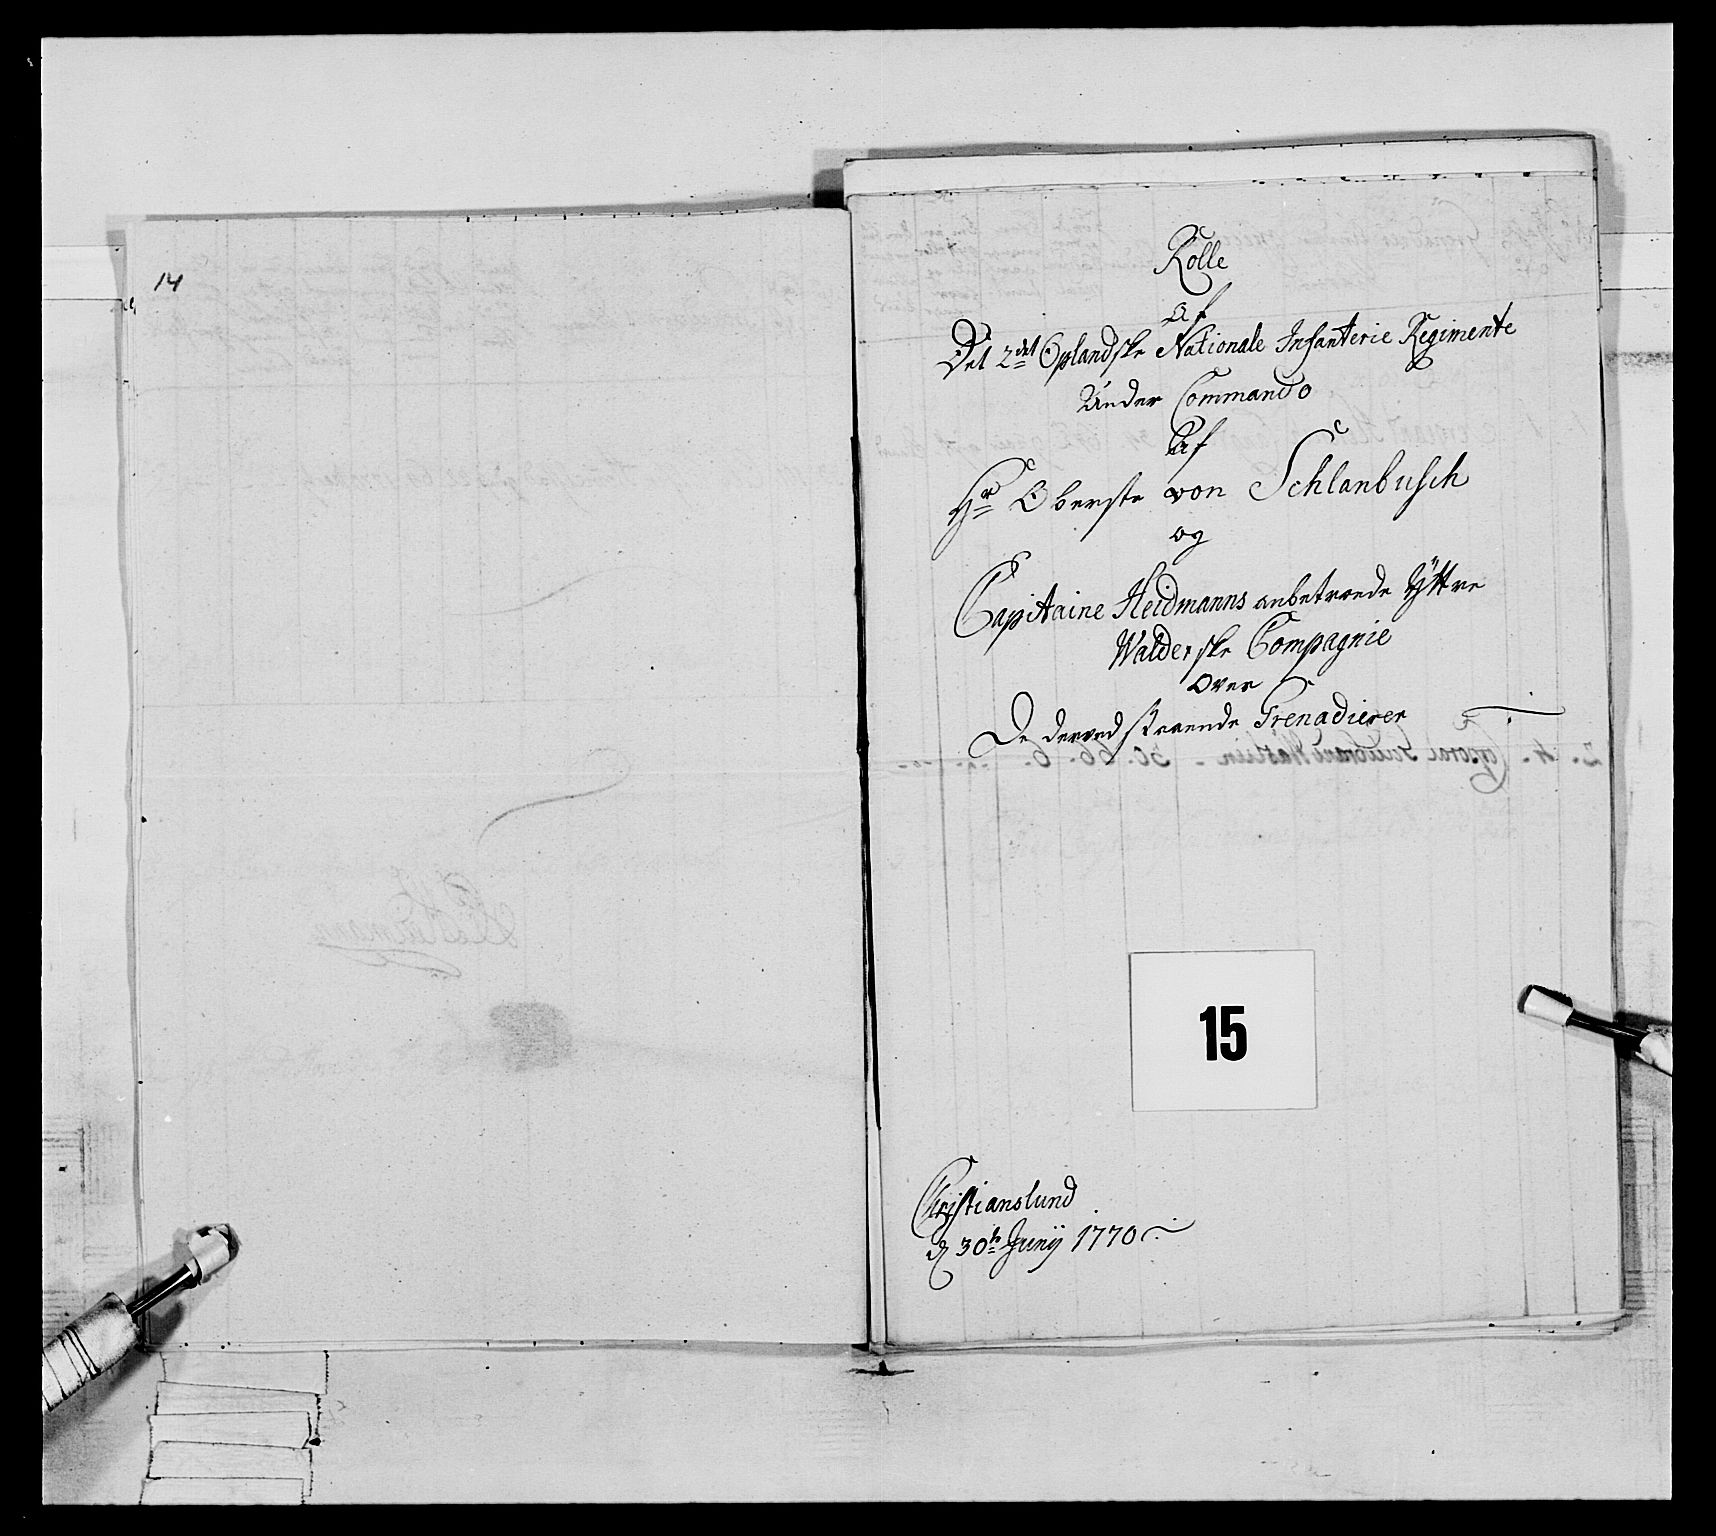 14
Rolle
Af
Det 2det Oplandske Nationale Infanterie Regimente
Under Commando
Af
Hr Oberste von Schlanbusch
og
Capitaine Heidmanns anbetroede Yttre
Walderske Compagnie
Over
De derved staaende Grenadierer
15
Christianslund
d 30te Junij 1770